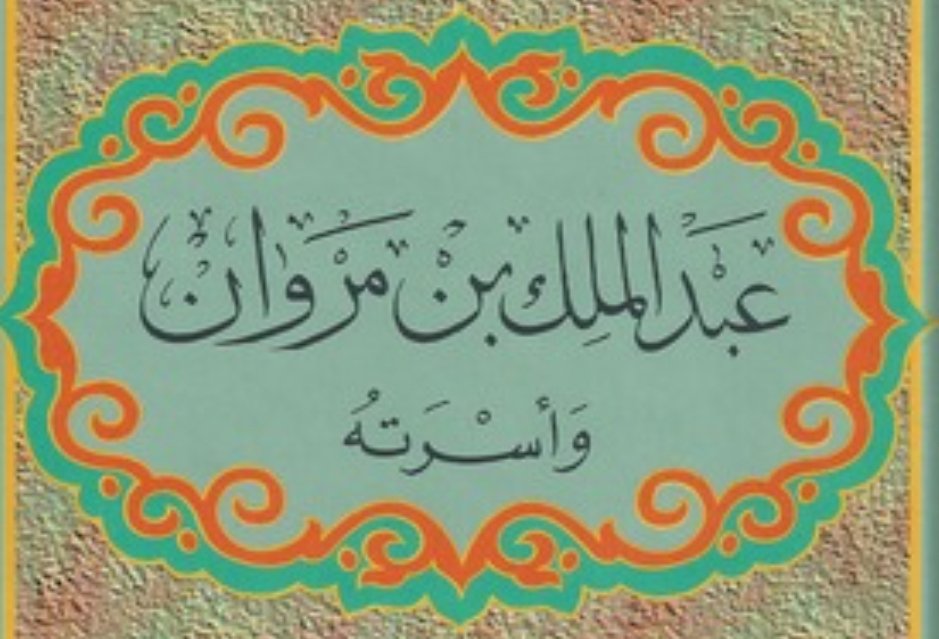 عَبْدالملِك بْن مَرْوَان
وَأسْرَتهُ